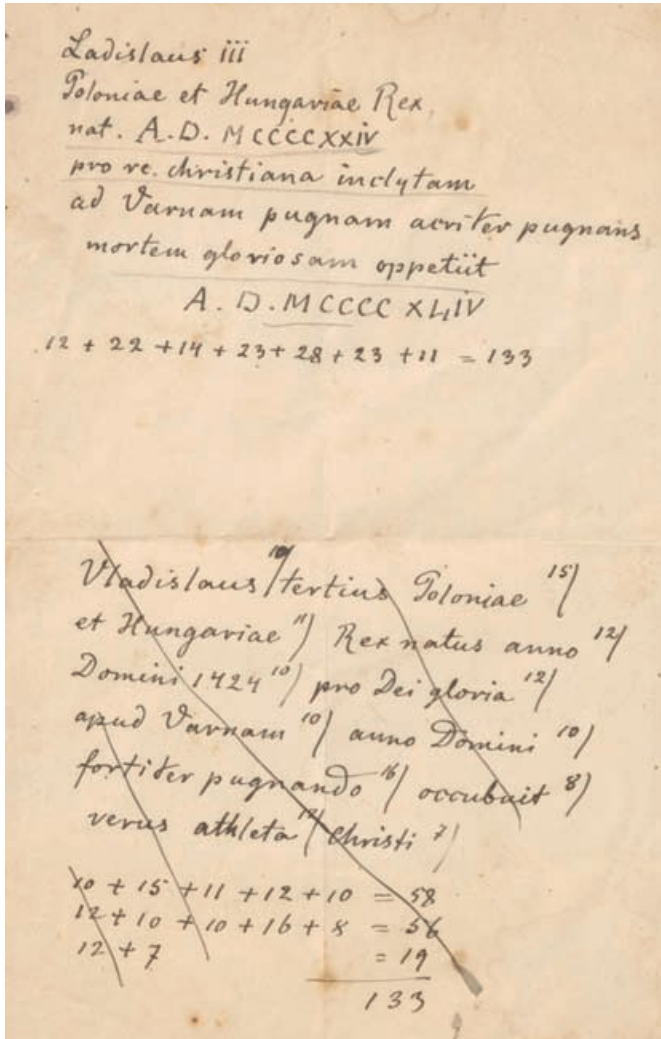 Ladislaus iii
Poloniae et Hungariae Rex
nat. A.D. MCCCCXXIV
pro re christiana inclytam
ad Varnam pugnam acriter pugnans
mortem gloriosam oppetiit
A.D. MCCCC XLIV
12 + 22 + 14 + 23 + 28 + 23 + 11 = 133
Vladislaus 10/ tertius Poloniae 15/
et Hungariae 11/ Rex natus anno 12/
Domini 1424 10/ pro Dei gloria 12/
apud Varnam 10/ anno Domini 10/
fortiter pugnando 16/ occubuit 8/
verus athleta 12/ Christi 7/
10 + 15 + 11 + 12 + 10 = 58
12 + 10 + 10 + 16 + 8 = 56
12 + 7 = 19
133